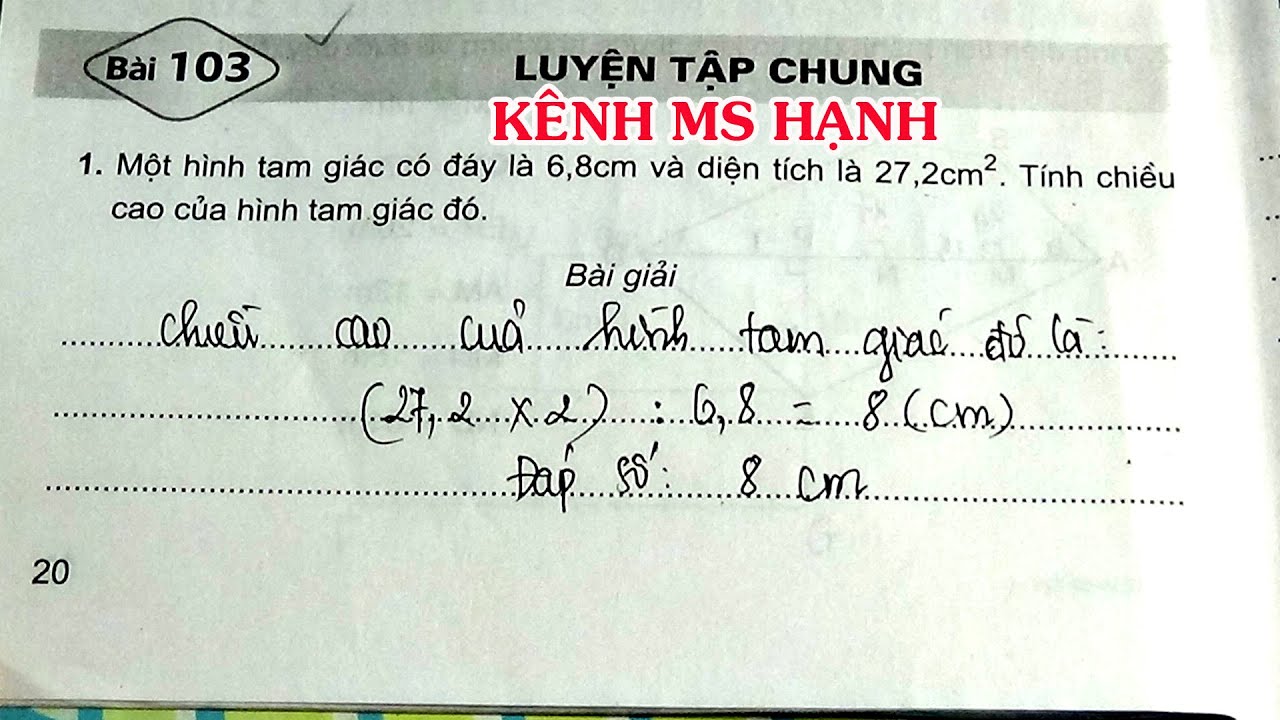 Bài 103
LUYỆN TẬP CHUNG
KÊNH MS HẠNH
1. Một hình tam giác có đáy là 6,8cm và diện tích là 27,2cm². Tính chiều
cao của hình tam giác đó.
Bài giải
chiều cao của hình tam giác đó là:
(27,2 x 2) : 6,8 = 8 (cm)
Đáp số: 8 cm
20